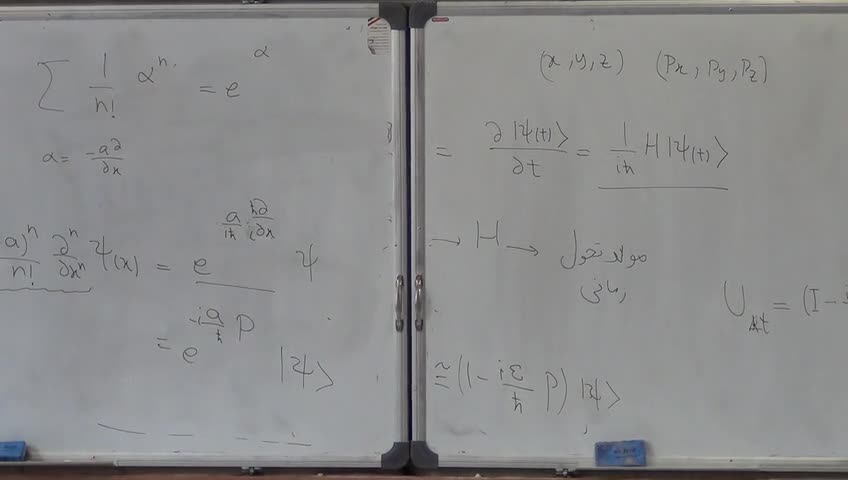 ∑ 1/n! αⁿ = e^α
α = -a∂/∂x
a)ⁿ/n! ∂ⁿ/∂xⁿ ψ(x) = e^(a/iħ ħ∂/i∂x) ψ
= e^(-i a/ħ P) |ψ⟩
(x, y, z) (Px, Py, Pz)
= ∂|ψ(t)⟩/∂t = 1/iħ H|ψ(t)⟩
→ H → مولد تحول
زمانی
U = (I -
≅ (1 - iε/ħ P) |ψ⟩